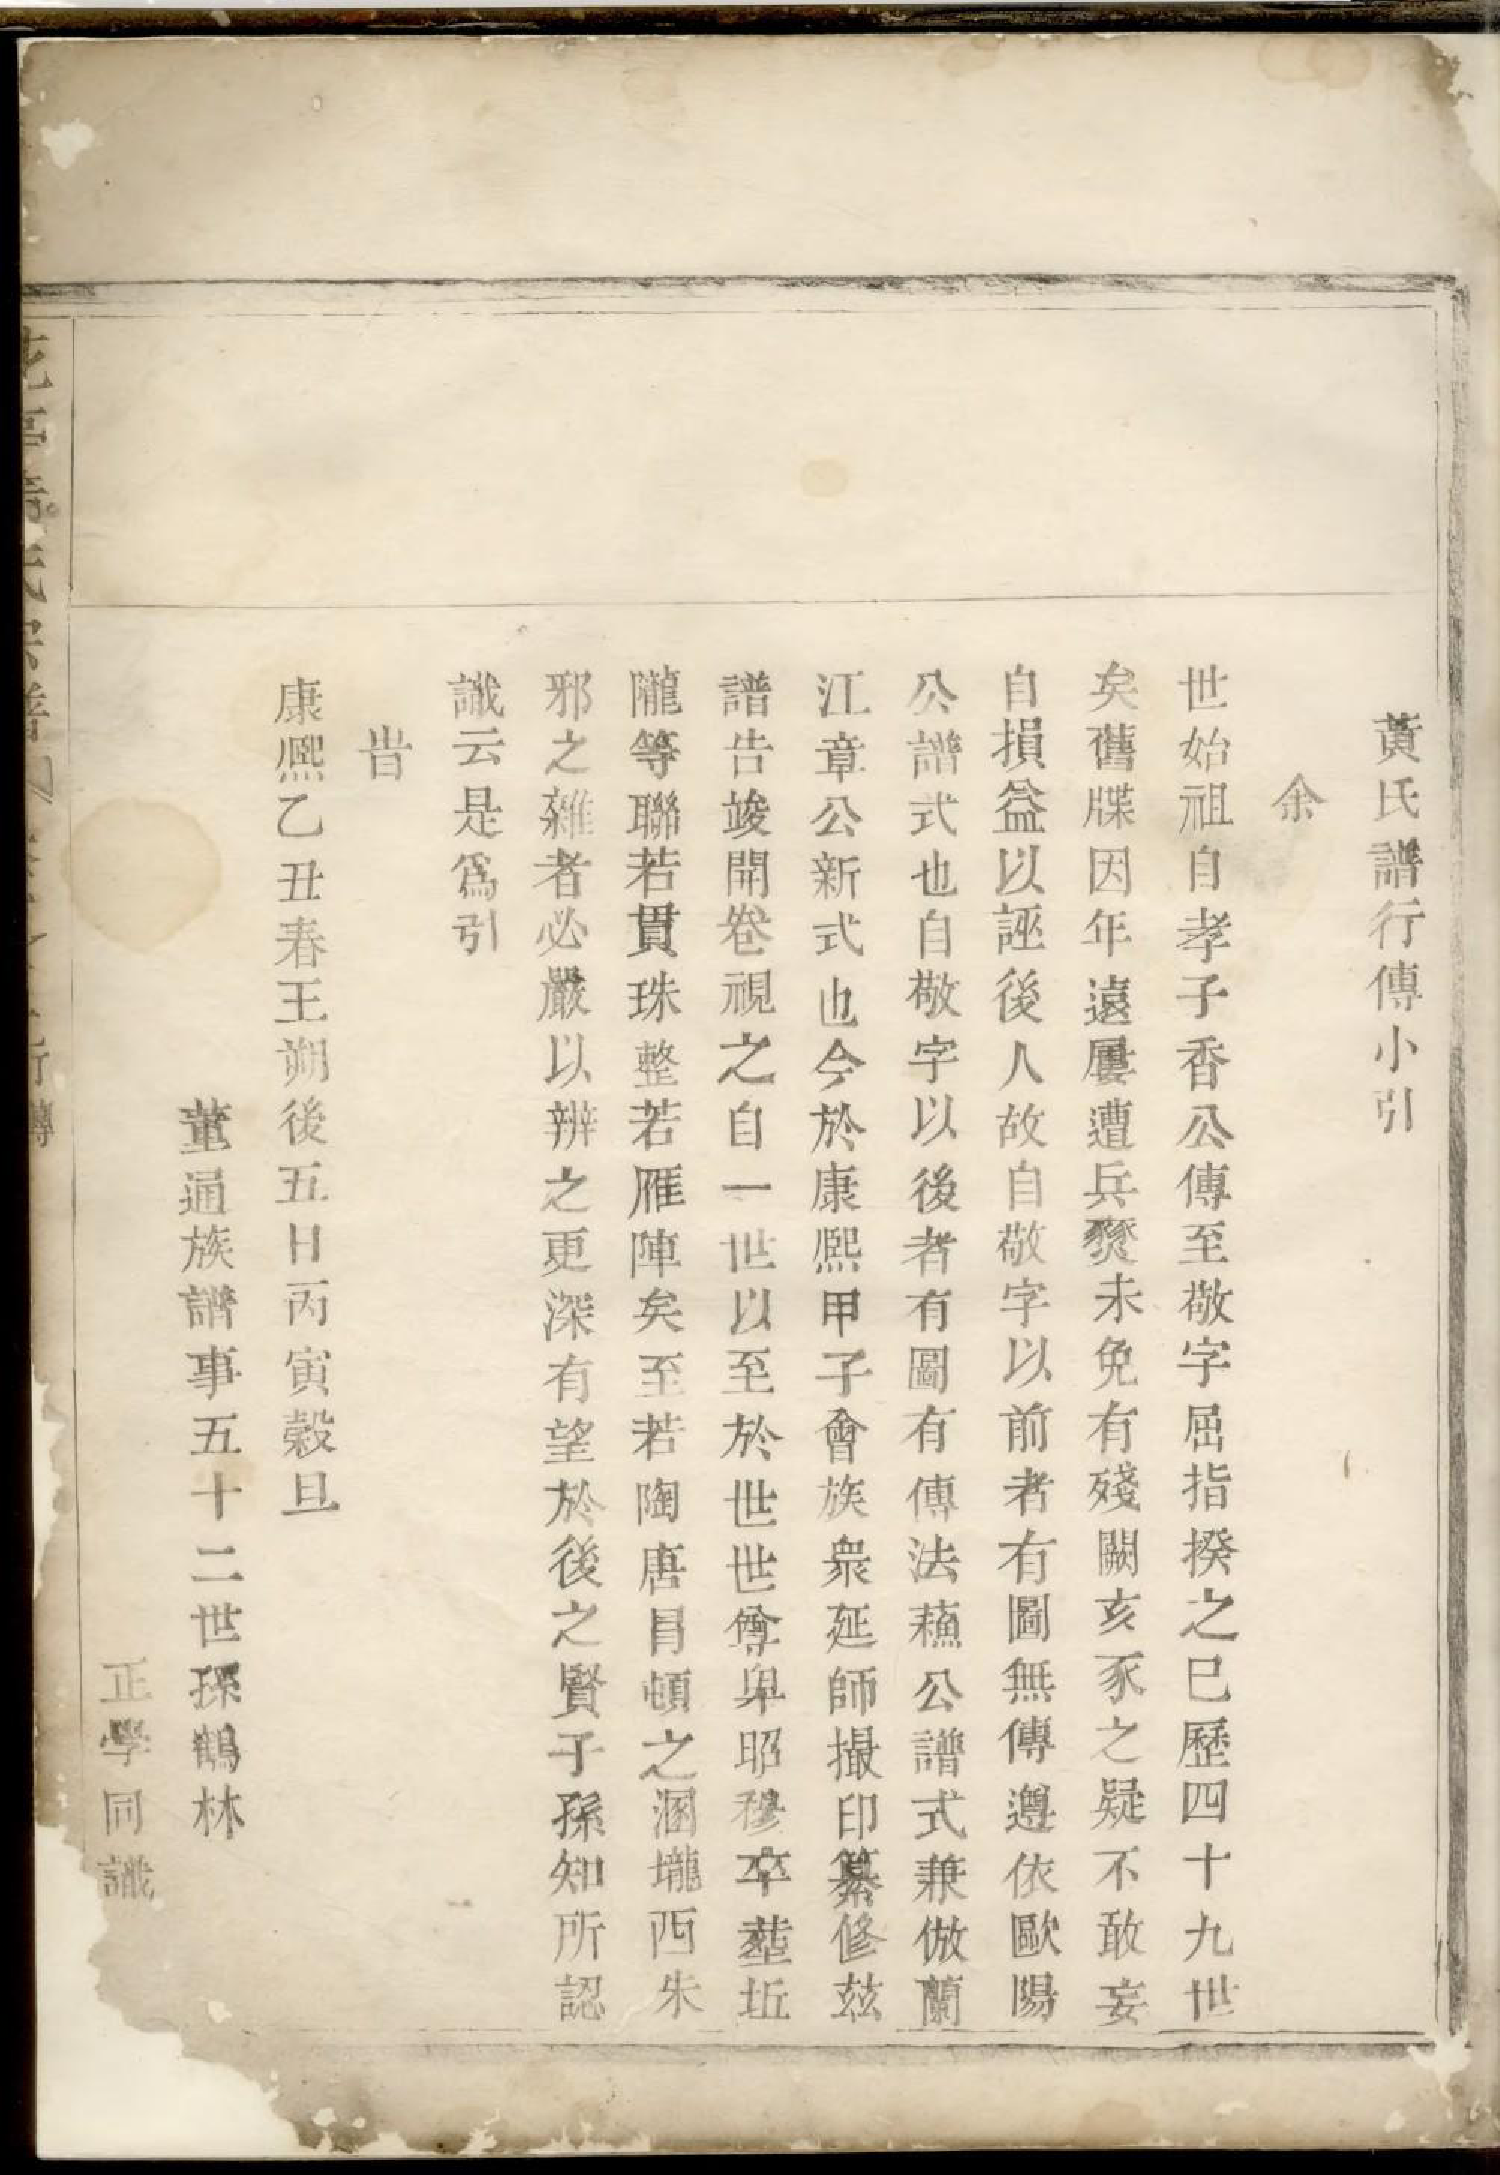 黃氏譜行傳小引
余
世始祖自孝子香公傳至敬字屈指揆之巳歷四十九世
矣舊牒因年遠屢遭兵燹未免有殘闕亥豕之疑不敢妄
自損益以誣後人故自敬字以前者有圖無傳遵依歐陽
公譜式也自敬字以後者有圖有傳法蘓公譜式兼倣蘭
江章公新式也今於康熙甲子會族衆延師撮印纂修玆
譜告竣開卷視之自一世以至於世世尊卑昭穆卒塟坵
隴等聯若貫珠整若雁陣矣至若陶唐冐頓之溷壠西朱
邪之雜者必嚴以辨之更深有望於後之賢子孫知所認
識云是爲引
旹
康熙乙丑春王朔後五日丙寅穀旦
董通族譜事五十二世孫鶴林
正學同識
氏宗譜
行傳